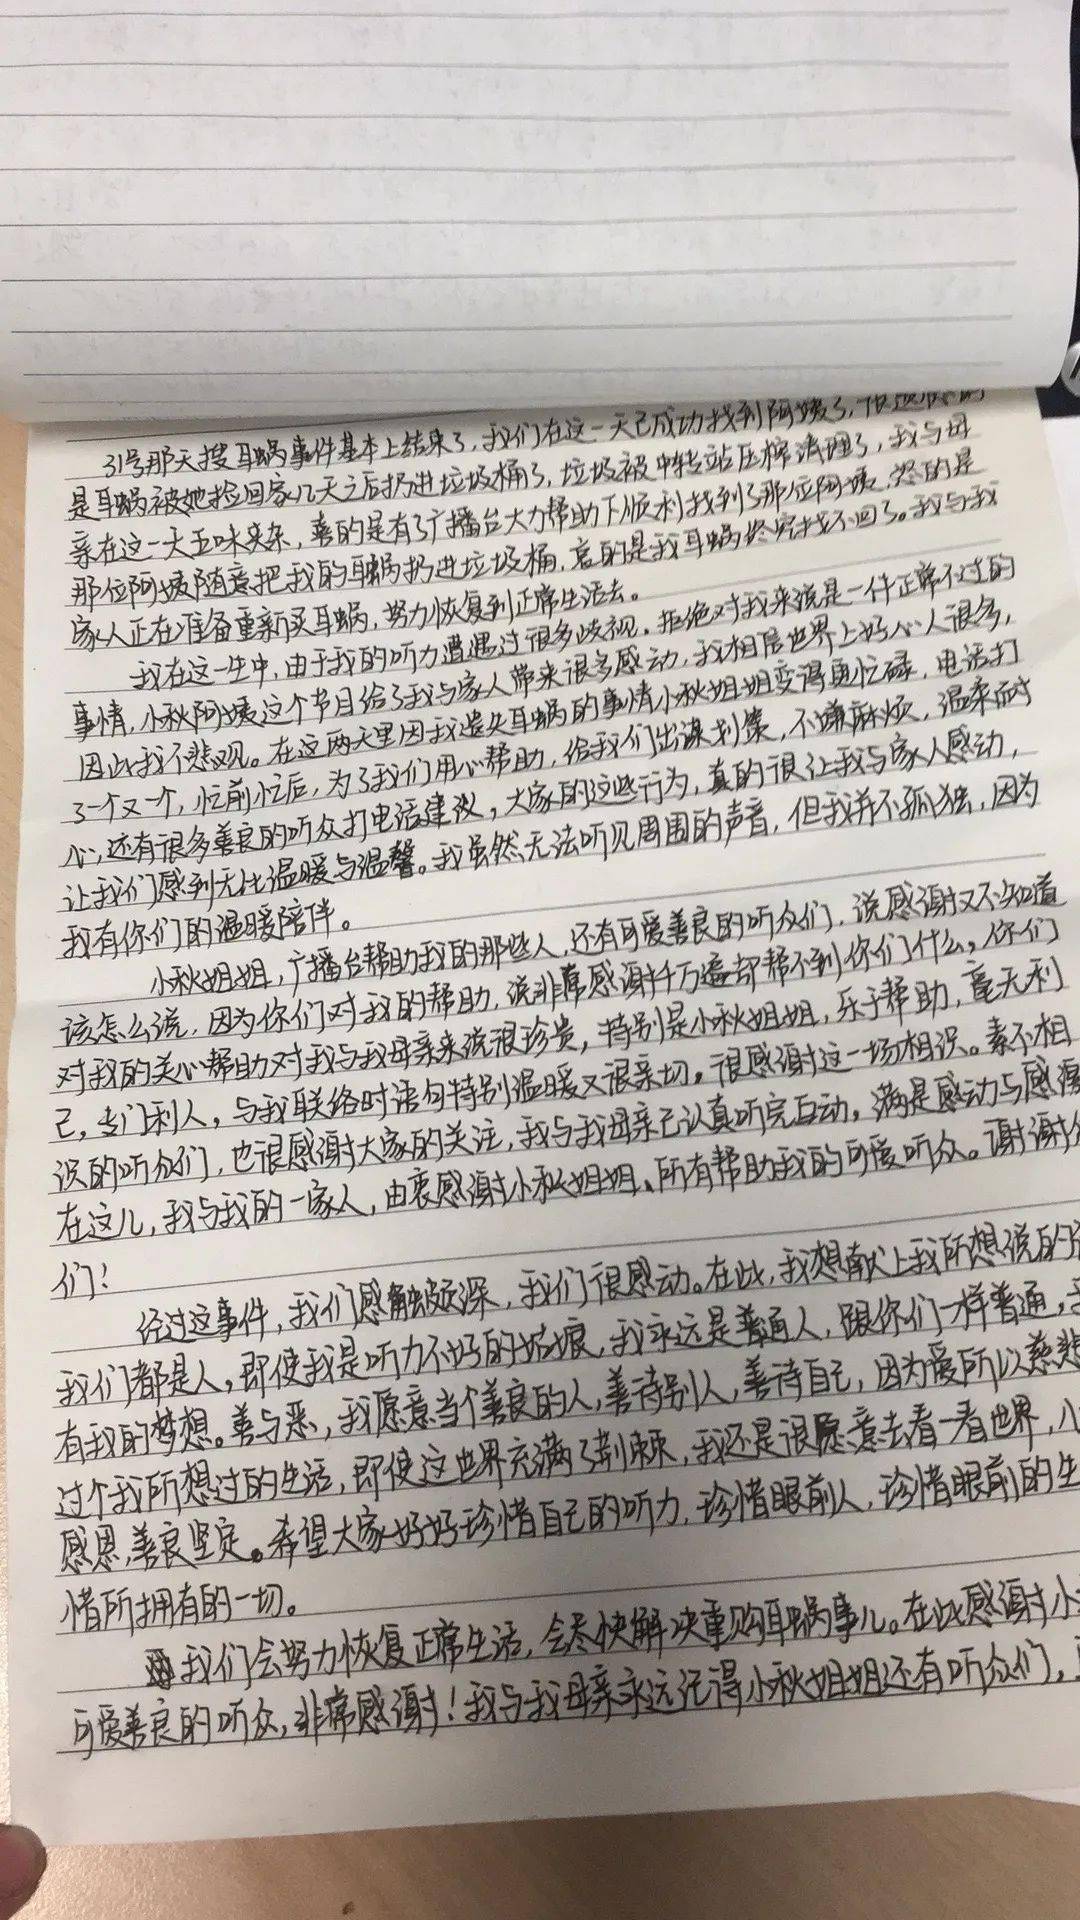 31号那天搜耳蜗事件基本上结束了，我们在这一天已成功找到阿姨了，很遗憾的
是耳蜗被她捡回家几天之后扔进垃圾桶了，垃圾被中转站压榨清理了，我与母
亲在这一天五味夹杂，喜的是有了广播台大力帮助下顺利找到了那位阿姨，怒的是
那位阿姨随意把我的耳蜗扔进垃圾桶，哀的是我耳蜗终究找不回了。我与我
家人正在准备重新买耳蜗，努力恢复到正常生活去。
我在这一生中，由于我的听力遭遇过很多歧视，拒绝对我来说是一件正常不过的
事情，小秋阿姨这个节目给了我与家人带来很多感动，我相信世界上好心人很多，
因此我不悲观。在这两天里因我遗失耳蜗的事情小秋姐姐变得更忙碌，电话打
了一个又一个，忙前忙后，为了我们用心帮助，给我们出谋划策，不嫌麻烦，温柔耐
心，还有很多善良的听众打电话建议。大家的这些行为，真的很让我与家人感动，
让我们感到无比温暖与温馨。我虽然无法听见周围的声音，但我并不孤独，因为
我有你们的温暖陪伴。
小秋姐姐，广播台帮助我的那些人，还有可爱善良的听众们，说感谢又不知道
该怎么说，因为你们对我的帮助，说非常感谢千万遍却帮不到你们什么，你们
对我的关心帮助对我与我母亲来说很珍贵，特别是小秋姐姐，乐于帮助，毫无利
己，专门利人，与我联络时语句特别温暖又很亲切。很感谢这一场相识。素不相
识的听众们，也很感谢大家的关注，我与我母亲已认真听完互动。满是感动与感激
在这儿，我与我的一家人，由衷感谢小秋姐姐、所有帮助我的可爱听众。谢谢
们！
经过这事件，我们感触颇深，我们很感动。在此，我想献上我所想说的
我们都是人，即使我是听力不好的姑娘，我永远是普通人，跟你们一样普通，
有我的梦想。善与恶，我愿意当个善良的人，善待别人，善待自己，因为爱所以慈悲
过个我所想过的生活，即使这世界充满了荆棘，我还是很愿意去看一看世界，
感恩，善良坚定。希望大家好好珍惜自己的听力，珍惜眼前人，珍惜眼前的生
惜所拥有的一切。
我们会努力恢复正常生活，会尽快解决重购耳蜗事儿。在此感谢小
可爱善良的听众，非常感谢！我与我母亲永远记得小秋姐姐还有听众们，